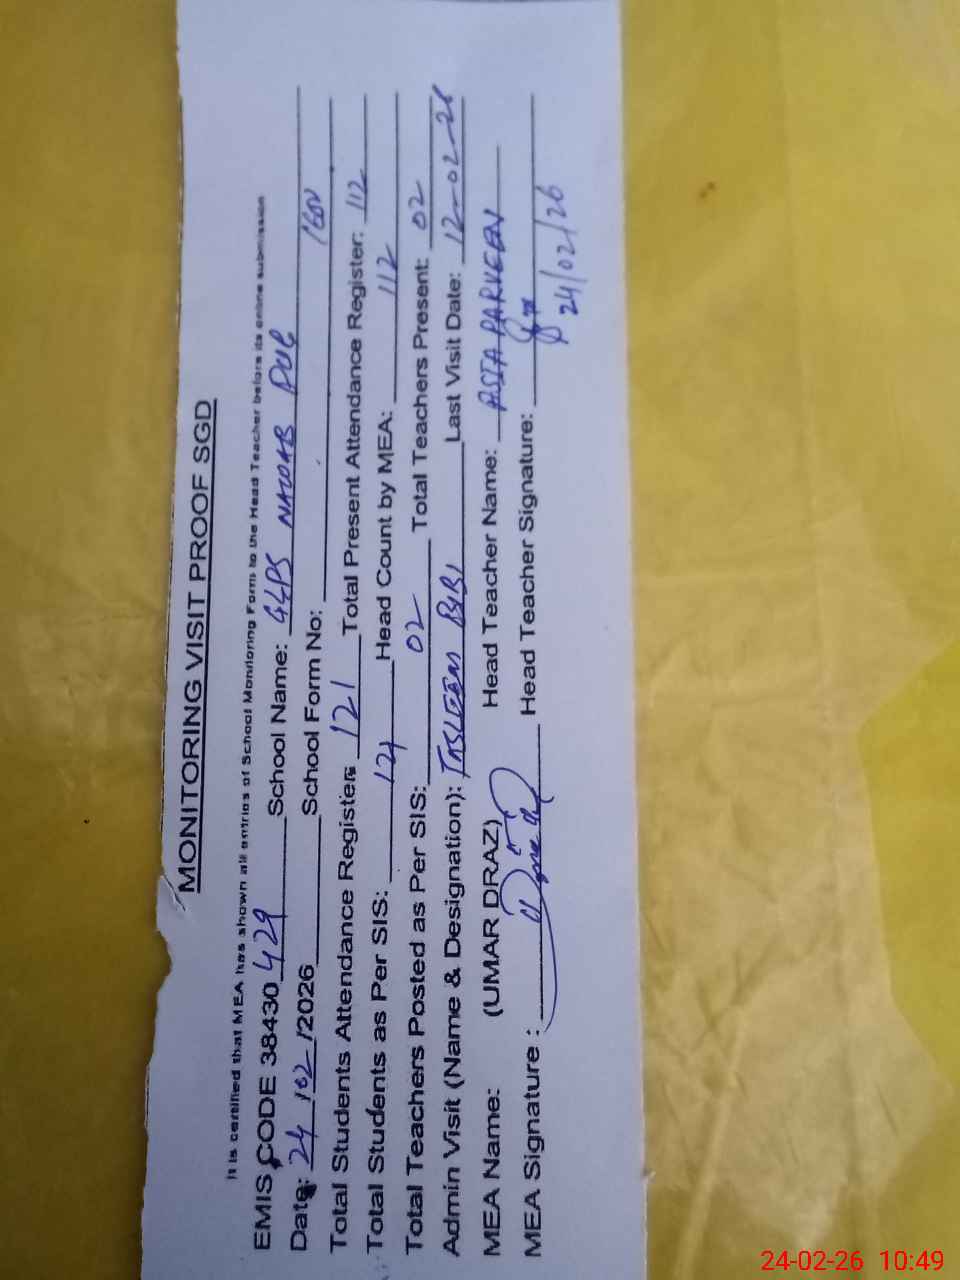 MONITORING VISIT PROOF SGD
It is certified that MEA has shown all entries of School Monitoring Form to the Head Teacher before its online submission
EMIS CODE 38430 429 School Name: GLPS NAZDAB PUR
Date: 24 / 02 / 2026 School Form No:
Total Students Attendance Register: 121 Total Present Attendance Register: 112
Total Students as Per SIS: 121 Head Count by MEA: 112
Total Teachers Posted as Per SIS: 02 Total Teachers Present: 02
Admin Visit (Name & Designation): TASLEEM BIBI Last Visit Date: 12-02-26
MEA Name: (UMAR DRAZ) Head Teacher Name: ASIA PARVEEN
MEA Signature : Head Teacher Signature:
24/02/26
24-02-26 10:49